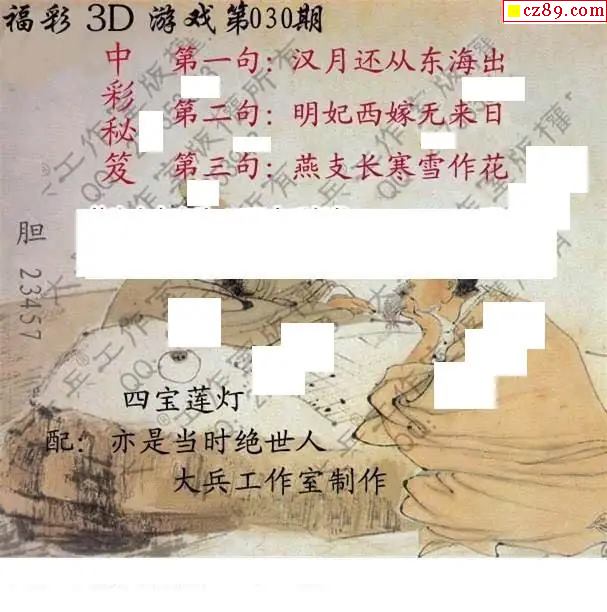 cz89.com
福彩 3D 游戏第030期
中彩秘笈
第一句：汉月还从东海出
第二句：明妃西嫁无来日
第三句：燕支长寒雪作花
胆 23457
四宝莲灯
配：亦是当时绝世人
大兵工作室制作